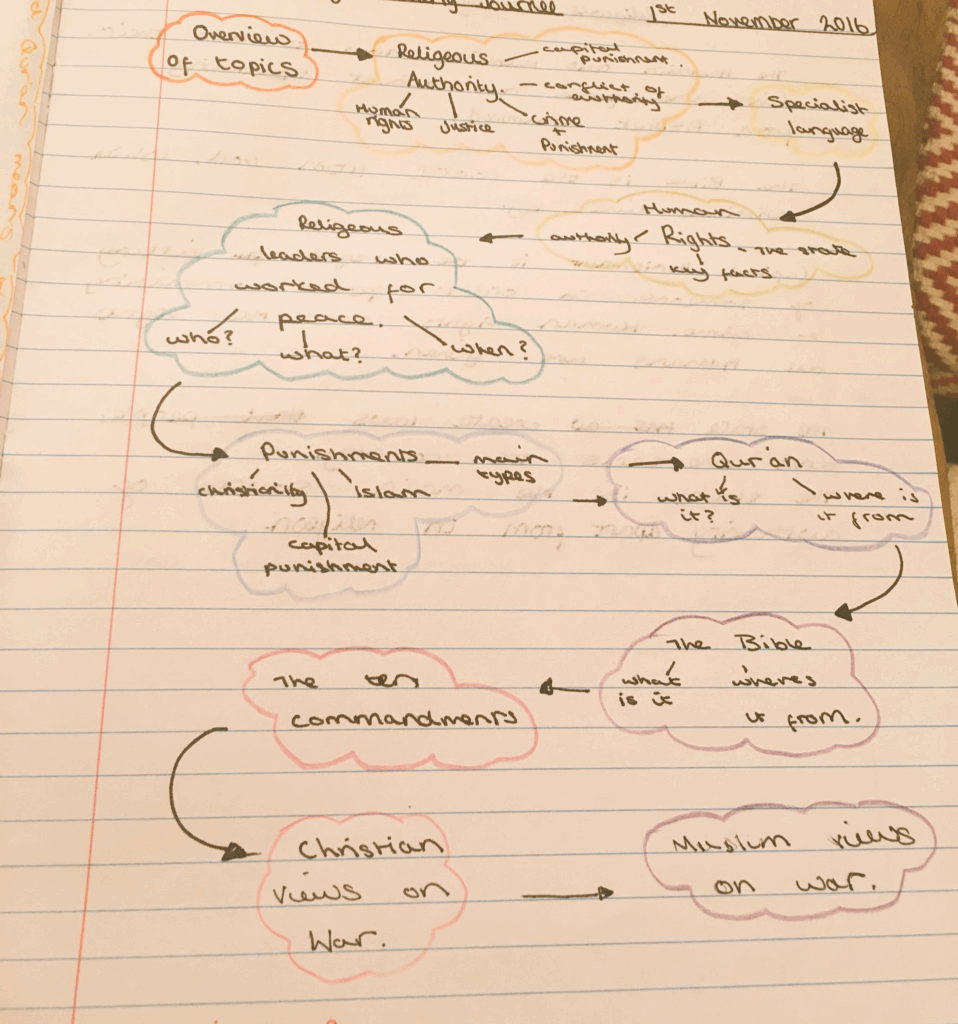 Journee
1st November 2016
Overview
of topics
Religeous
Authority.
capital
punishment.
conflict of
authority
Human
rights
Justice
crime
+
Punishment
Specialist
language
Human
Rights
authority
The state
key facts
Religeous
leaders who
worked for
peace.
who?
what?
when?
Punishments
main
types
christianity
Islam
capital
punishment
Qur'an
what is
it?
where is
it from
The Bible
what
is it
wheres
it from.
The ten
commandments
Christian
views on
War.
Muslim views
on war.